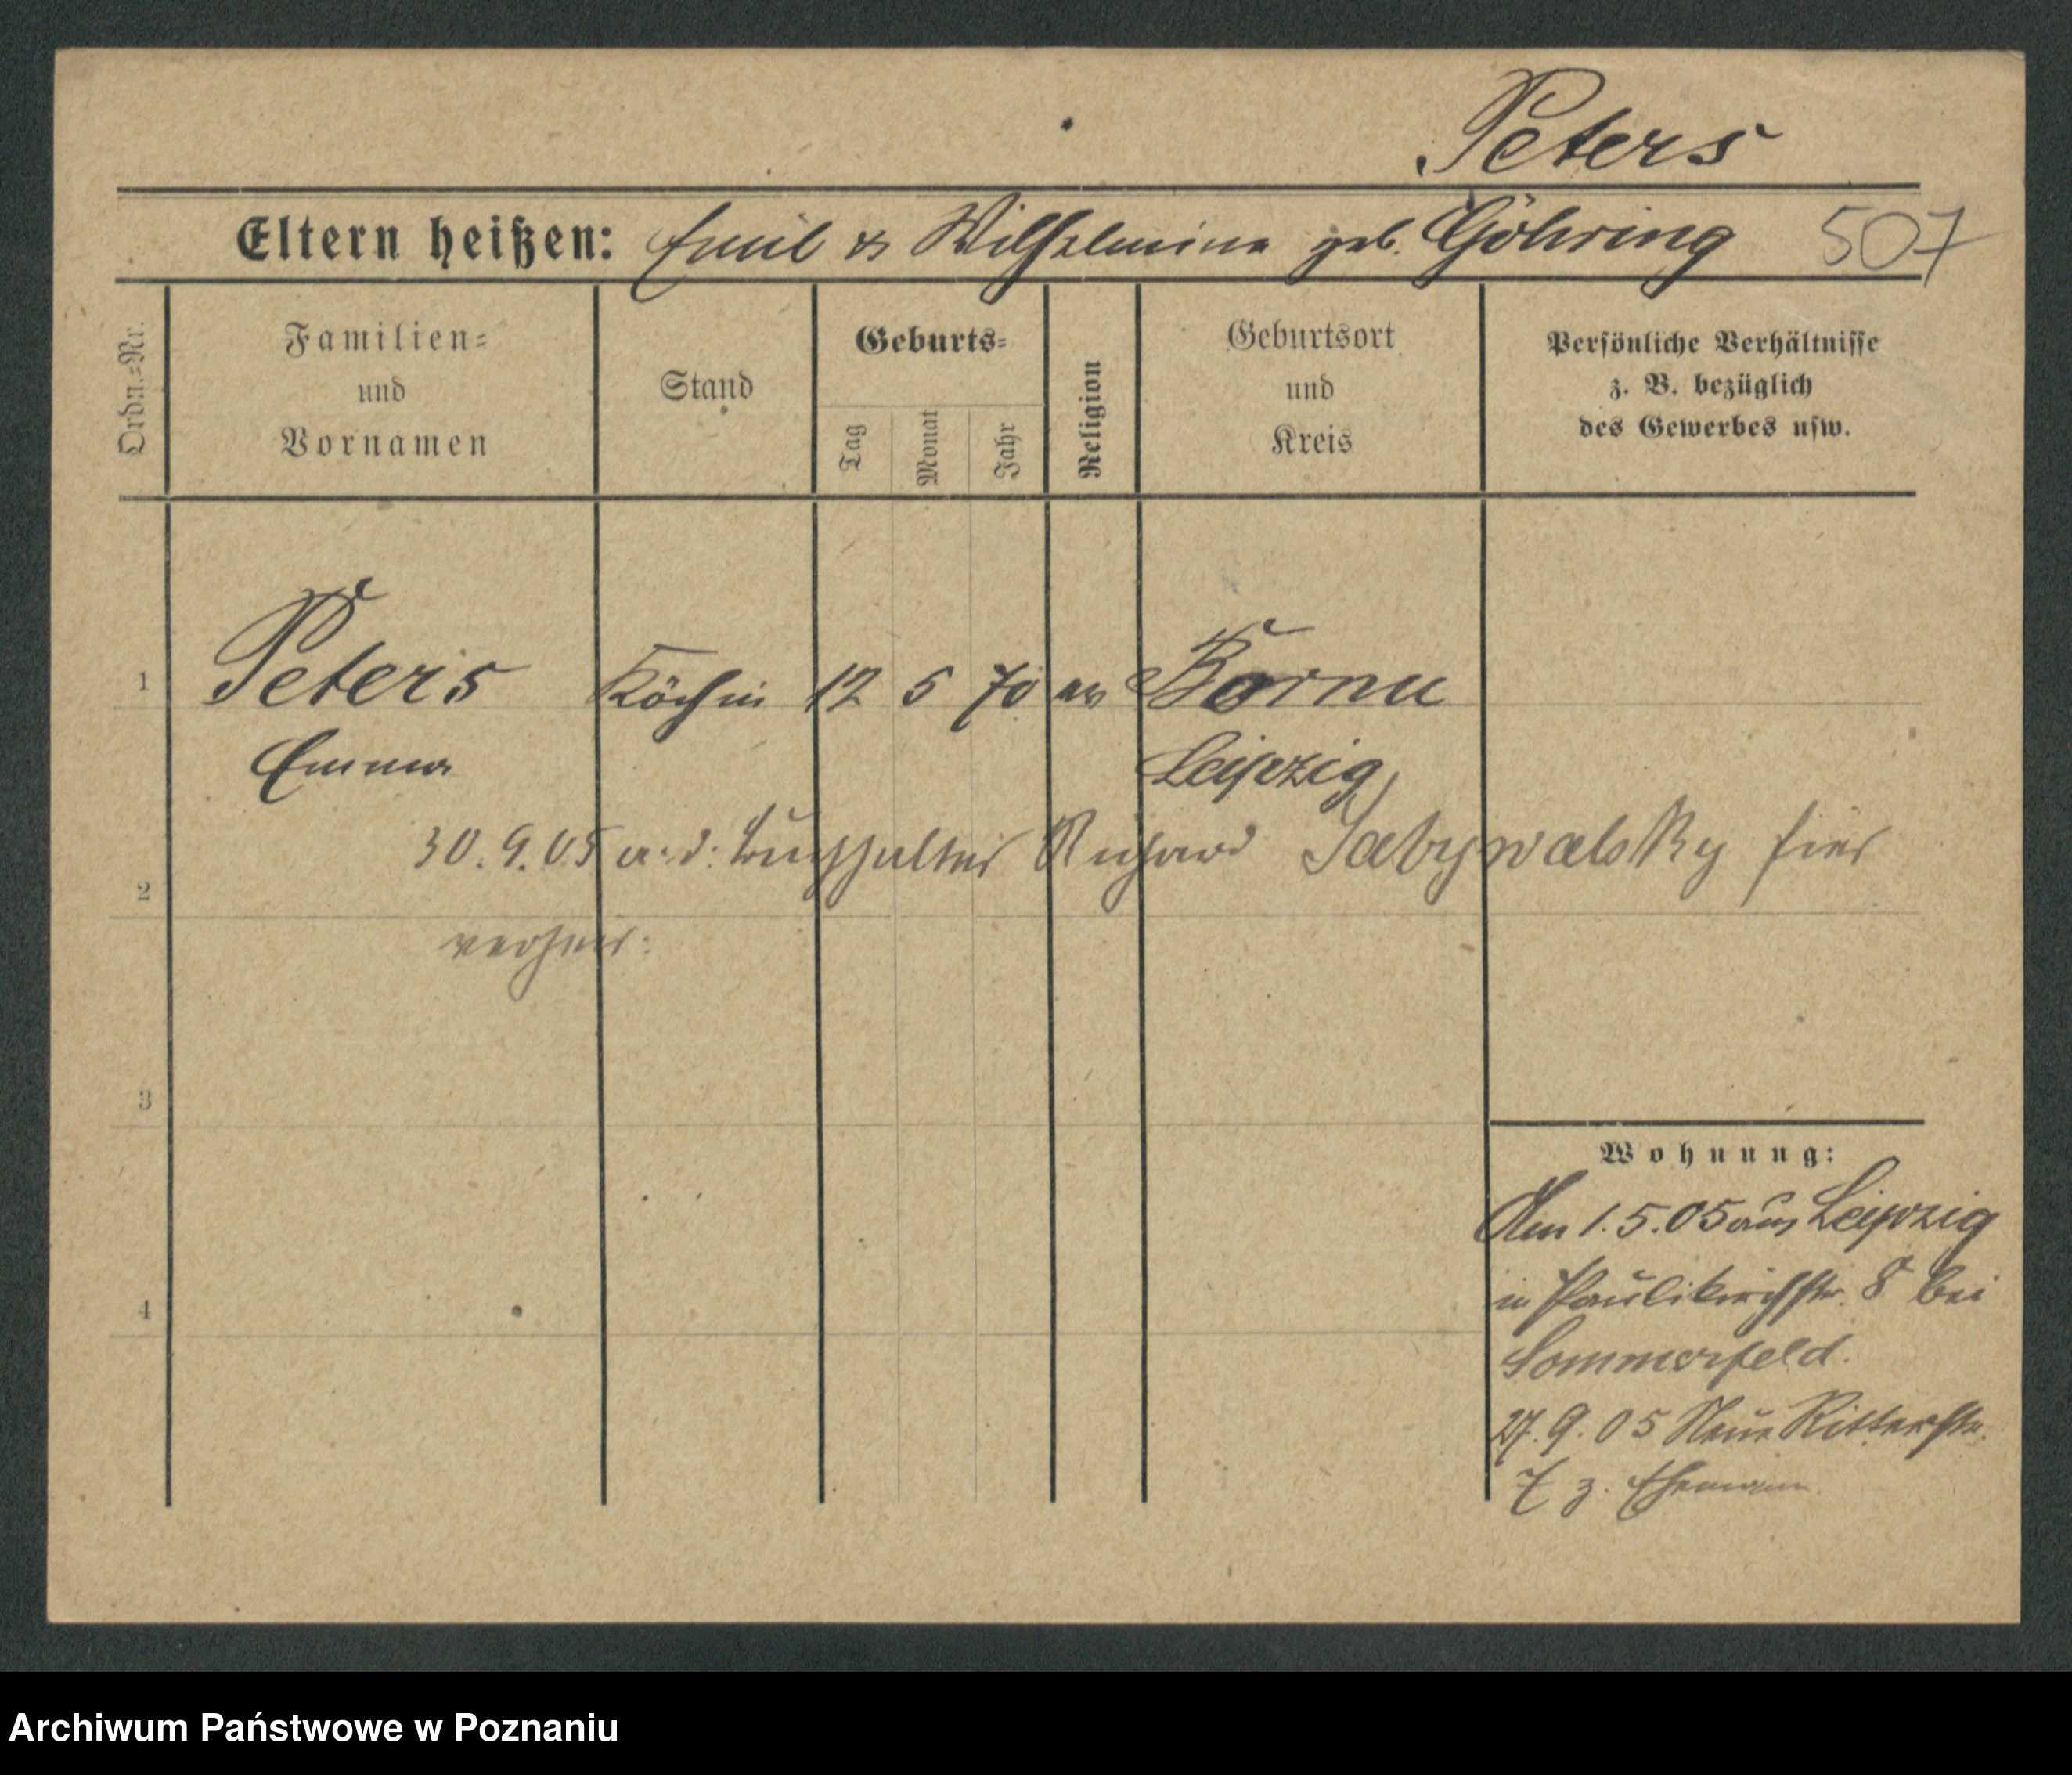 Peters
Eltern heißen: Emil & Wilhelmine geb. Göhring 507
Ordn.=Nr.
Familien=
und
Vornamen
Stand
Geburts=
Tag
Monat
Jahr
Religion
Geburtsort
und
Kreis
Persönliche Verhältnisse
z. B. bezüglich
des Gewerbes usw.
1 Peters Köchin 12 5 70 ev Borna
Emma Leipzig
30. 9. 05 a. d. Buchhalter Richard hier
2
verheir:
3
4
Wohnung:
Am 1. 5. 05 aus Leipzig
in Paulikirchstr. 8 bei
Sommerfeld.
27. 9. 05 Neue Ritterstr.
7 z. Ehemann
Archiwum Państwowe w Poznaniu